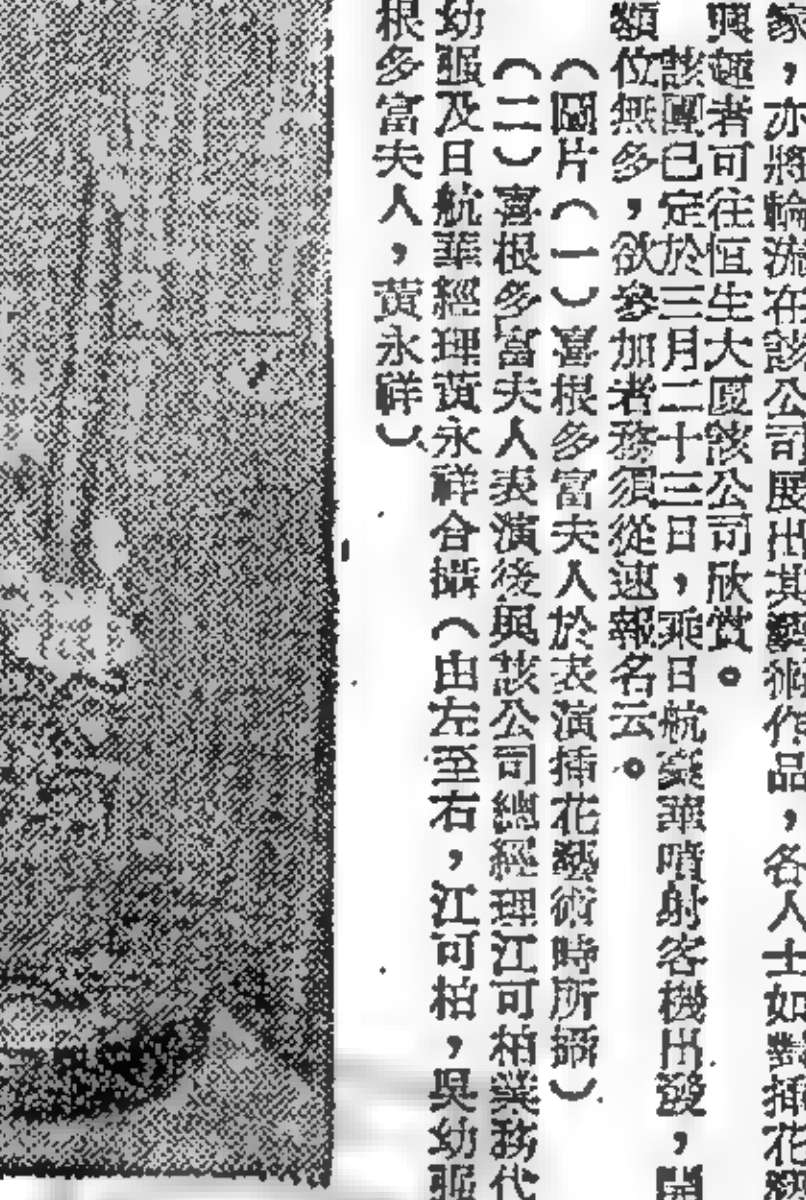 家，亦將輪流在該公司展出其藝術作品，各人士如對插花藝
興趣者可往恒生大厦該公司欣賞。
該團已定於三月二十三日，乘日航豪華噴射客機出發，
額位無多，欲參加者務須從速報名云。
（圖片（一）喜根多富夫人於表演插花藝術時所攝）
（二）喜根多富夫人表演後與該公司總經理江可柏業務代
幼服及日航華經理黃永祥合攝（由左至右，江可柏，吳幼服
根多富夫人，黃永祥）